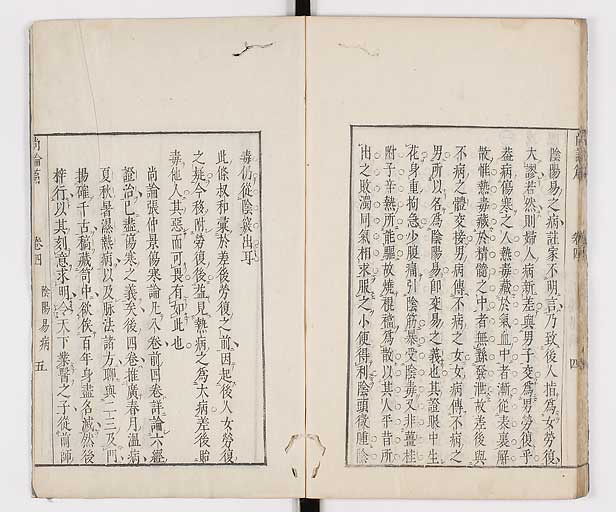 陰陽易之病註家不明言乃致後人指為女勞復
大謬若然則婦人病新差與男子交為男勞復乎
蓋病傷寒之人熱毒藏於氣血中者漸從表裏解
散惟熱毒藏於精髓之中者無繇發泄故差後與
不病之體交接男病傳不病之女女病傳不病之
男所以名為陰陽易即交易之義也其證眼中生
花身重拘急少腹痛引陰筋暴受陰毒又非薑桂
附子辛熱所能驅故燒裩襠為散以其人平昔所
出之敗濁同氣相求服之小便得利陰頭微腫陰
毒仍從陰竅出耳
此條叔和彙於差後勞復之前因起後人女勞復
之疑今移附勞復後益見熱病之為大病差後貽
毒他人其惡而可畏有如此也
尚論張仲景傷寒論凡八卷前四卷詳論六經
證治已盡傷寒之義矣後四卷推廣春月溫病
夏秋暑濕熱病以及脉法諸方聊與二三及門
揚確千古稿藏笥中欲俟百年身盡名滅然後
梓行以其刻意求明令天下業醫之子從前師
尚論篇 卷四 陰陽易病 五
卷四 四